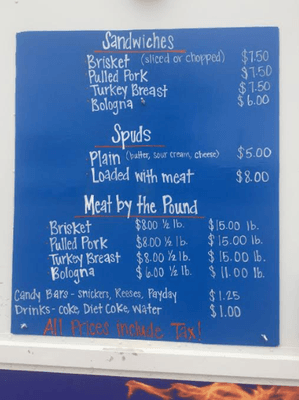 Sandwiches
Brisket (sliced or chopped) $7.50
Pulled Pork $7.50
Turkey Breast $7.50
Bologna $6.00
Spuds
Plain (butter, sour cream, cheese) $5.00
Loaded with meat $8.00
Meat by the Pound
Brisket $8.00 ½ lb. $15.00 lb.
Pulled Pork $8.00 ½ lb. $15.00 lb.
Turkey Breast $8.00 ½ lb. $15.00 lb.
Bologna $6.00 ½ lb. $11.00 lb.
Candy Bars - snickers, Reeses, Payday $1.25
Drinks - coke, Diet Coke, Water $1.00
All Prices include Tax!